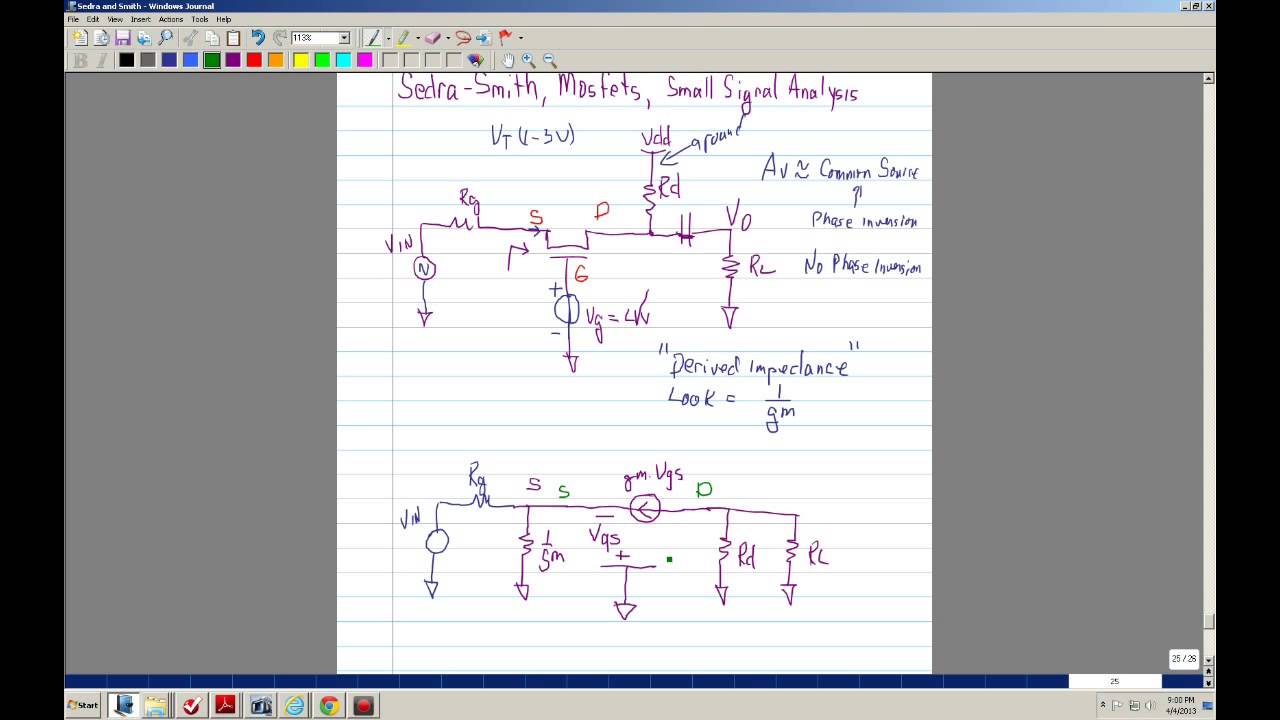 Sedra and Smith - Windows Journal
File Edit View Insert Actions Tools Help
113%
B I
Sedra-Smith, Mosfets, Small Signal Analysis
VT (1-3V)
Vdd
ground
Rd
Av ≈ Common Source
Phase inversion
No Phase Inversion
Rg
S
D
VO
VIN
N
G
RL
+
Vg = 4V
-
"Derived impedance"
Look = 1/gm
Rg
S
S
gm.Vgs
D
VIN
1/gm
Vgs
+
Rd
RL
25 / 26
25
Start
9:00 PM
4/4/2013